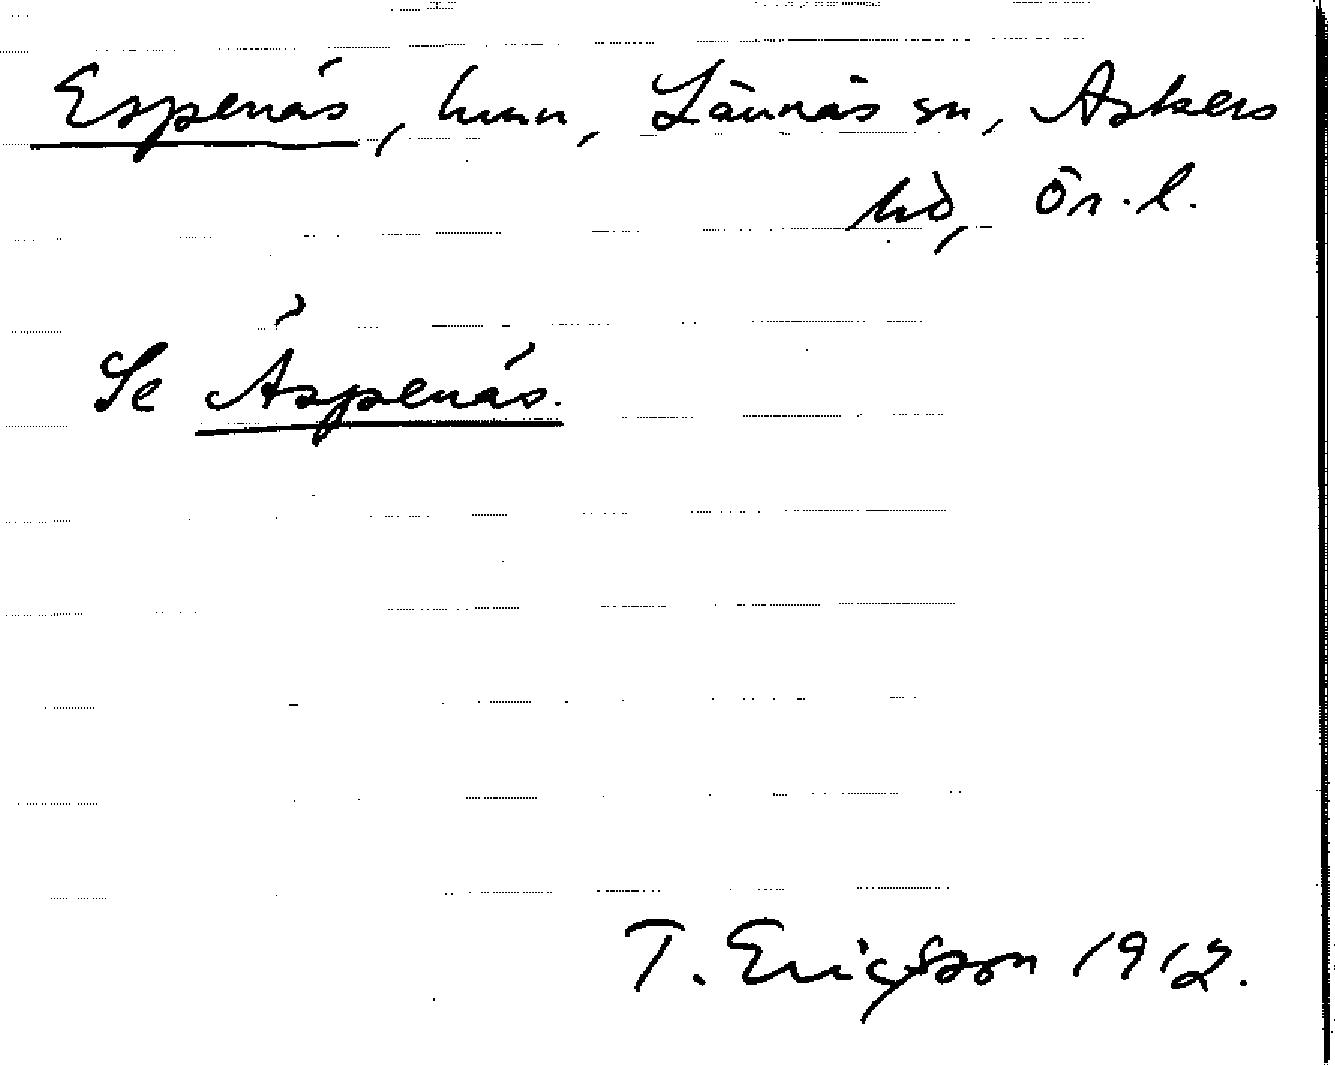 Espenäs, hmn, Lännäs sn, Askers
hd, Ör. l.
Se Äspenäs.
T. Ericsson 1912.